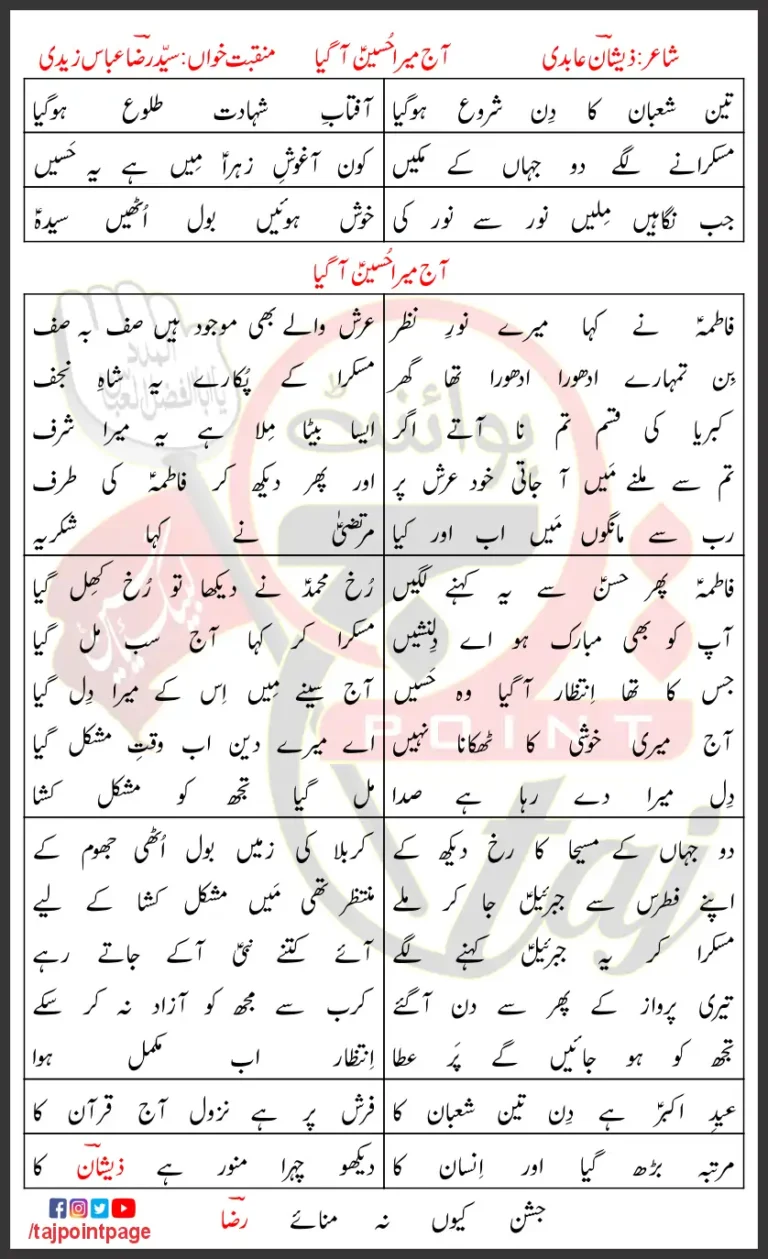 شاعر: ذیشانؔ عابدی آج میرا حُسینؑ آ گیا منقبت خواں: سیّد رضاؔ عباس زیدی
تین شعبان کا دِن شروع ہوگیا آفتابِ شہادت طلوع ہوگیا
مسکرانے لگے دو جہاں کے مکیں کون آغوشِ زہراؑ مِیں ہے یہ حَسیں
جب نگاہیں مِلیں نور سے نور کی خوش ہوئیں بول اُٹھیں سیدہؑ
آج میرا حُسینؑ آ گیا
فاطمہؑ نے کہا میرے نورِ نظر
بِن تمہارے ادھورا ادھورا تھا گھر
کبریا کی قسم تم نا آتے اگر
تم سے ملنے مَیں آ جاتی خود عرش پر
رب سے مانگوں مَیں اب اور کیا
عرش والے بھی موجود ہیں صف بہ صف
مسکرا کے پُکارے یہ شاہِ نجف
ایسا بیٹا مِلا ہے یہ میرا شرف
اور پھر دیکھ کر فاطمہؑ کی طرف
مرتضیٰؑ نے کہا شکریہ
فاطمہؑ پھر حسنؑ سے یہ کہنے لگیں
آپ کو بھی مبارک ہو اے دِلنشیں
جس کا تھا اِنتظار آ گیا وہ حَسیں
آج میری خوشی کا ٹھکانا نہیں
دِل میرا دے رہا ہے صدا
رُخ محمدؐ نے دیکھا تو رُخ کھِل گیا
مسکرا کر کہا آج سب مل گیا
آج سینے مِیں اِس کے میرا دِل گیا
اے میرے دین اب وقتِ مشکل گیا
مل گیا تجھ کو مشکل کشا
دو جہاں کے مسیحا کا رخ دیکھ کے
اپنے فطرس سے جبرئیلؑ جا کر ملے
مسکرا کر یہ جبرئیلؑ کہنے لگے
تیری پرواز کے پھر سے دن آ گئے
تجھ کو ہو جائیں گے پَر عطا
کربلا کی زمیں بول اُٹھی جھوم کے
منتظر تھی مَیں مشکل کشا کے لیے
آئے کتنے نبیؑ آکے جاتے رہے
کرب سے مجھ کو آزاد نہ کر سکے
اِنتظار اب مکمل ہوا
عیدِ اکبرؑ ہے دِن تین شعبان کا فرش پر ہے نزول آج قرآن کا
مرتبہ بڑھ گیا اور اِنسان کا دیکھو چہرا منور ہے ذیشانؔ کا
جشن کیوں نہ منائے رضاؔ
/tajpointpage
پوائنٹ
تاج
POINT
taj
المدد
یا ابا الفضل العباسؑ
لبیک یا حسینؑ